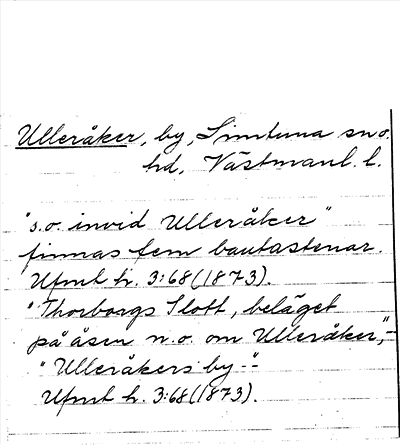 Ulleråker, by, Simtuna sn o.
hd, Västmanl. l.
"s.o. invid Ulleråker"
finnas fem bautastenar.
Ufmt h. 3:68 (1873).
"Thorborgs Slott, beläget
på åsen n.o. om Ulleråker,"-
"Ulleråkers by-"-
Ufmt h. 3:68 (1873).